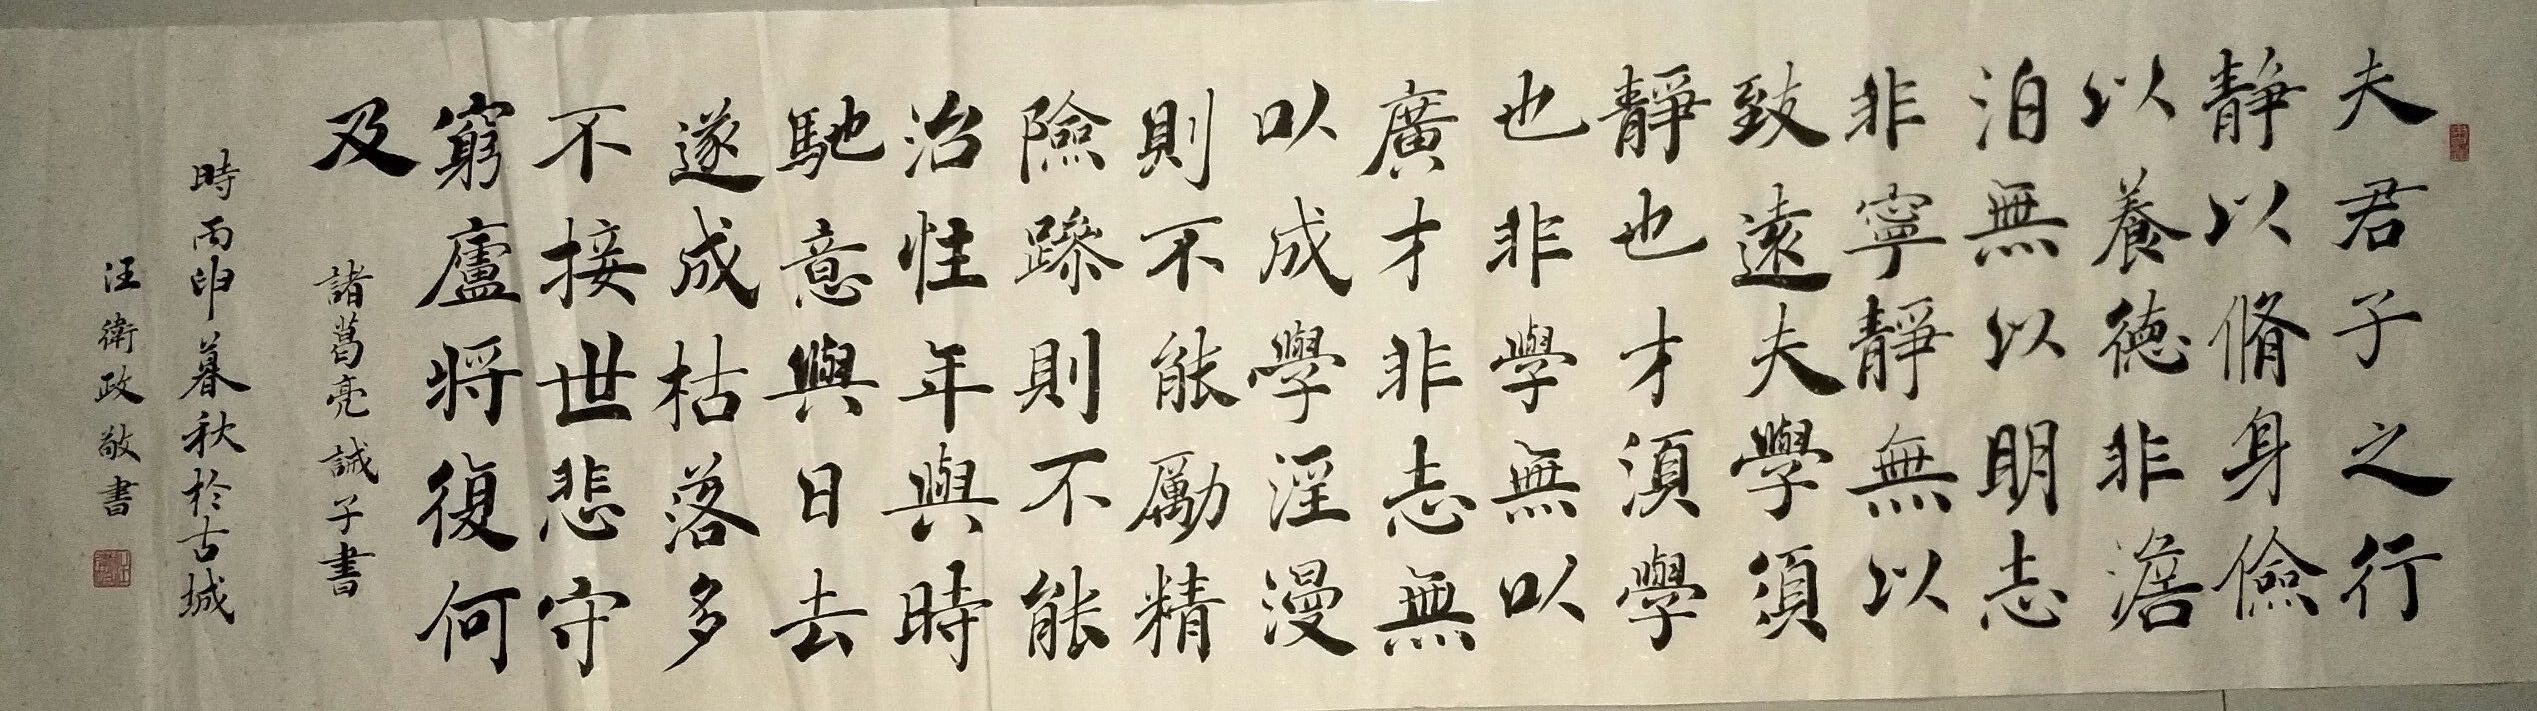 夫君子之行
靜以脩身儉
以養德非澹
泊無以明志
非寧靜無以
致遠夫學須
靜也才須學
也非學無以
廣才非志無
以成學淫漫
則不能勵精
險躁則不能
治性年與時
馳意與日去
遂成枯落多
不接世悲守
窮廬將復何
及
諸葛亮誡子書
時丙申暮秋於古城
汪衛政敬書